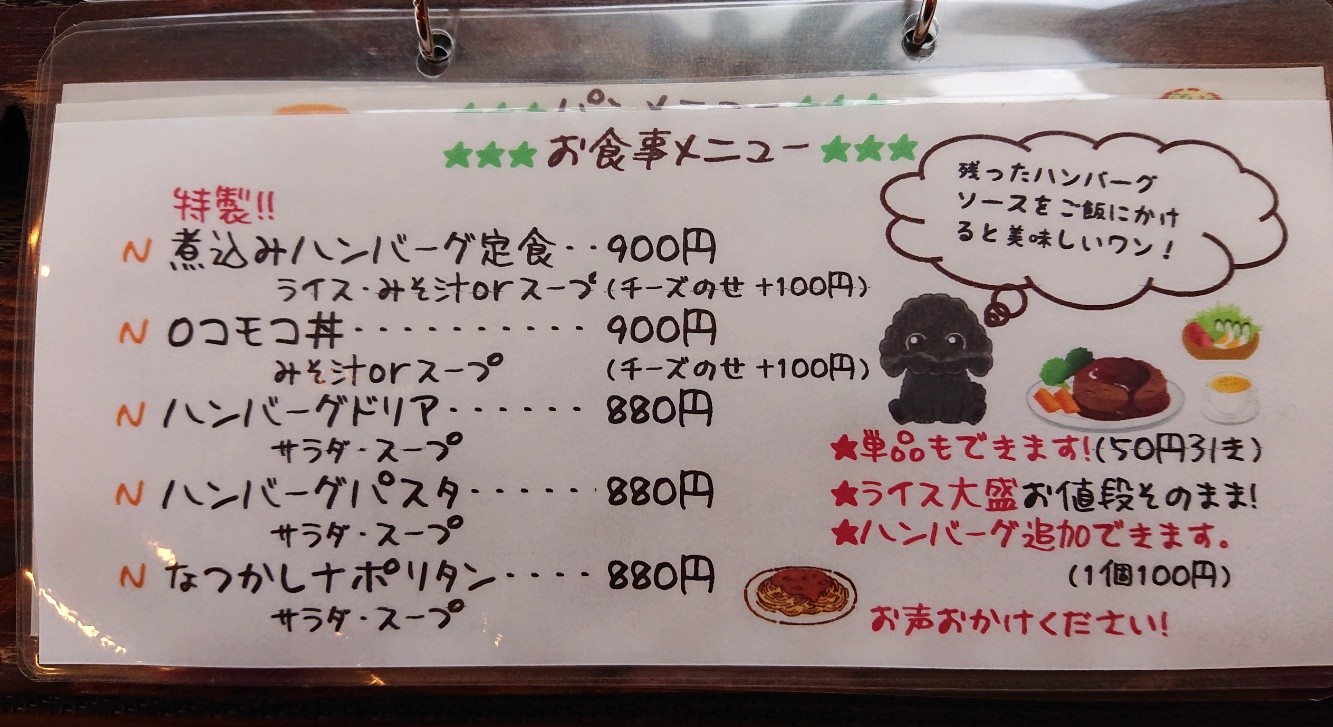 パンメニュー
★★★お食事メニュー★★★
特製!!
N 煮込みハンバーグ定食‥900円
ライス・みそ汁orスープ(チーズのせ+100円)
N ロコモコ丼・・・・・・・・・・900円
みそ汁orスープ (チーズのせ+100円)
N ハンバーグドリア・・・・・・880円
サラダ・スープ
N ハンバーグパスタ・・・・・・880円
サラダ・スープ
N なつかしナポリタン・・・・880円
サラダ・スープ
残ったハンバーグ
ソースをご飯にかけ
ると美味しいワン!
★単品もできます!(50円引き)
★ライス大盛お値段そのまま!
★ハンバーグ追加できます。
(1個100円)
お声おかけください!